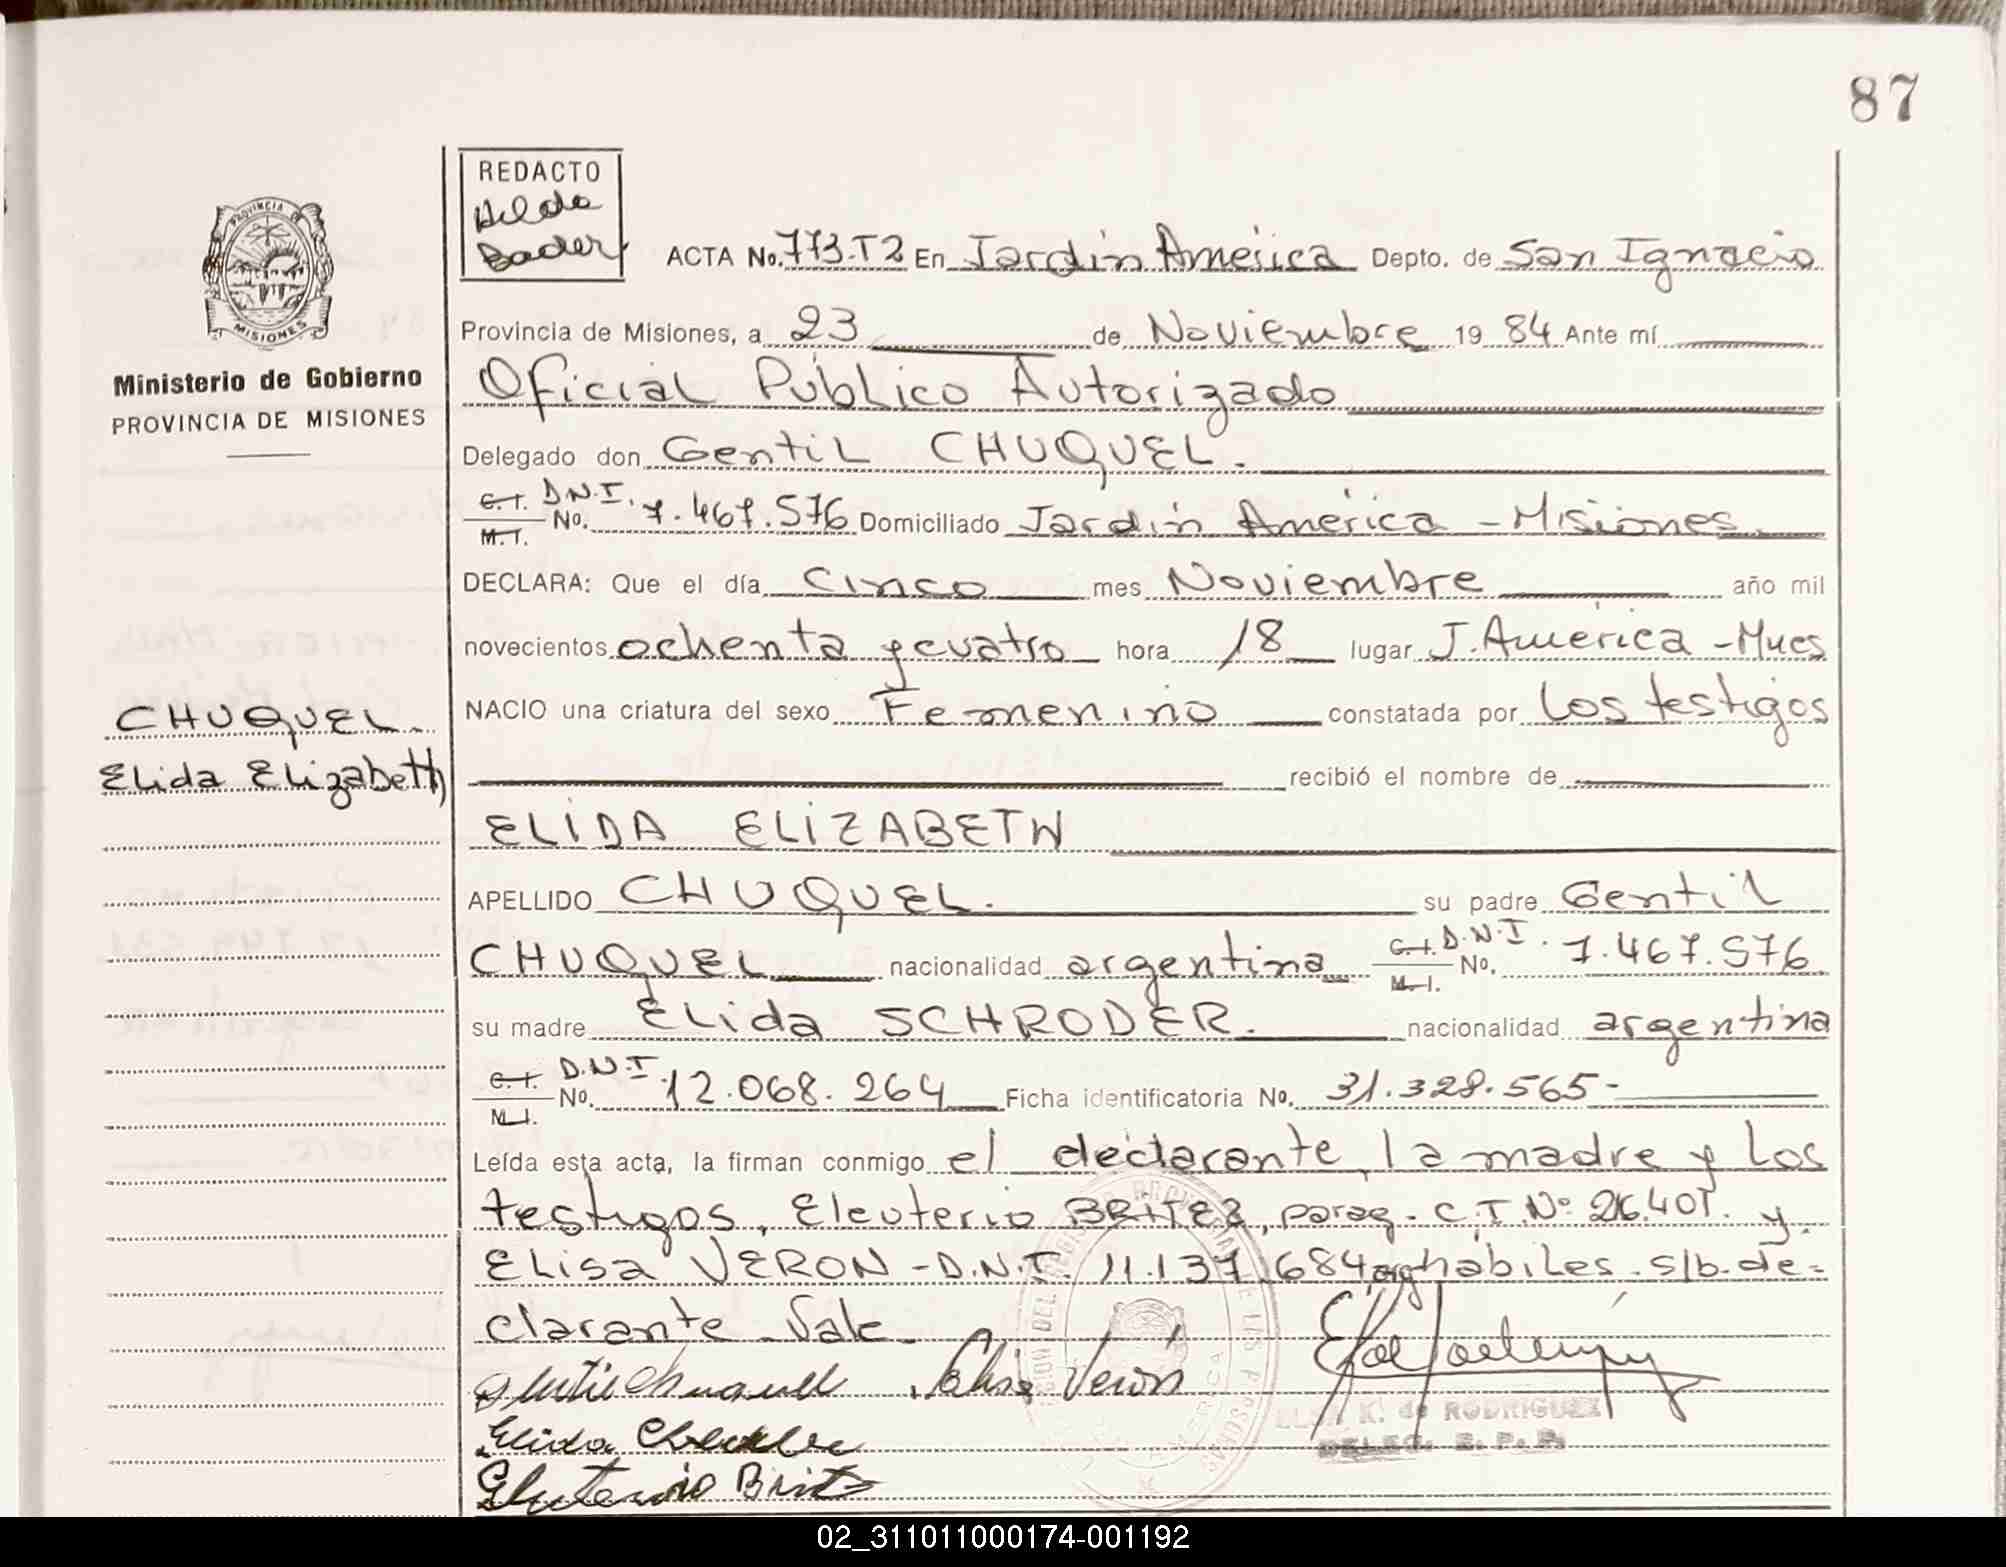 87
REDACTO
Hilda
Bader
PROVINCIA DE
MISIONES
Ministerio de Gobierno
PROVINCIA DE MISIONES
ACTA No. 773.T2 En Jardín América Depto. de San Ignacio
Provincia de Misiones, a 23 de Noviembre 19 84 Ante mí
Oficial Público Autorizado
Delegado don Gentil CHUQUEL.
C.I. D.N.I.
M.I. No. 7.467.576 Domiciliado Jardín América - Misiones
DECLARA: Que el día Cinco mes Noviembre año mil
novecientos ochenta y cuatro hora 18 lugar J. América - Mnes
NACIO una criatura del sexo Femenino constatada por los testigos
recibió el nombre de
CHUQUEL
Elida Elizabeth
ELIDA ELIZABETH
APELLIDO CHUQUEL. su padre Gentil
CHUQUEL nacionalidad argentina C.I. D.N.I. M.I. No. 7.467.576
su madre Elida SCHRODER. nacionalidad argentina
C.I. D.N.I. M.I. No. 12.068.264 Ficha identificatoria No. 31.328.565-
Leída esta acta, la firman conmigo el declarante, la madre y los
testigos, Eleuterio BRITEZ, parag. C.I. Nº 216.401. y
Elisa VERON - D.N.I. 11.137.684 arg hábiles. s/b. de-
clarante Vale
Elisa Verón
Elida
Eleuterio Britez
ELSA K. de RODRIGUEZ
DELEG. R. P. P.
02_311011000174-001192